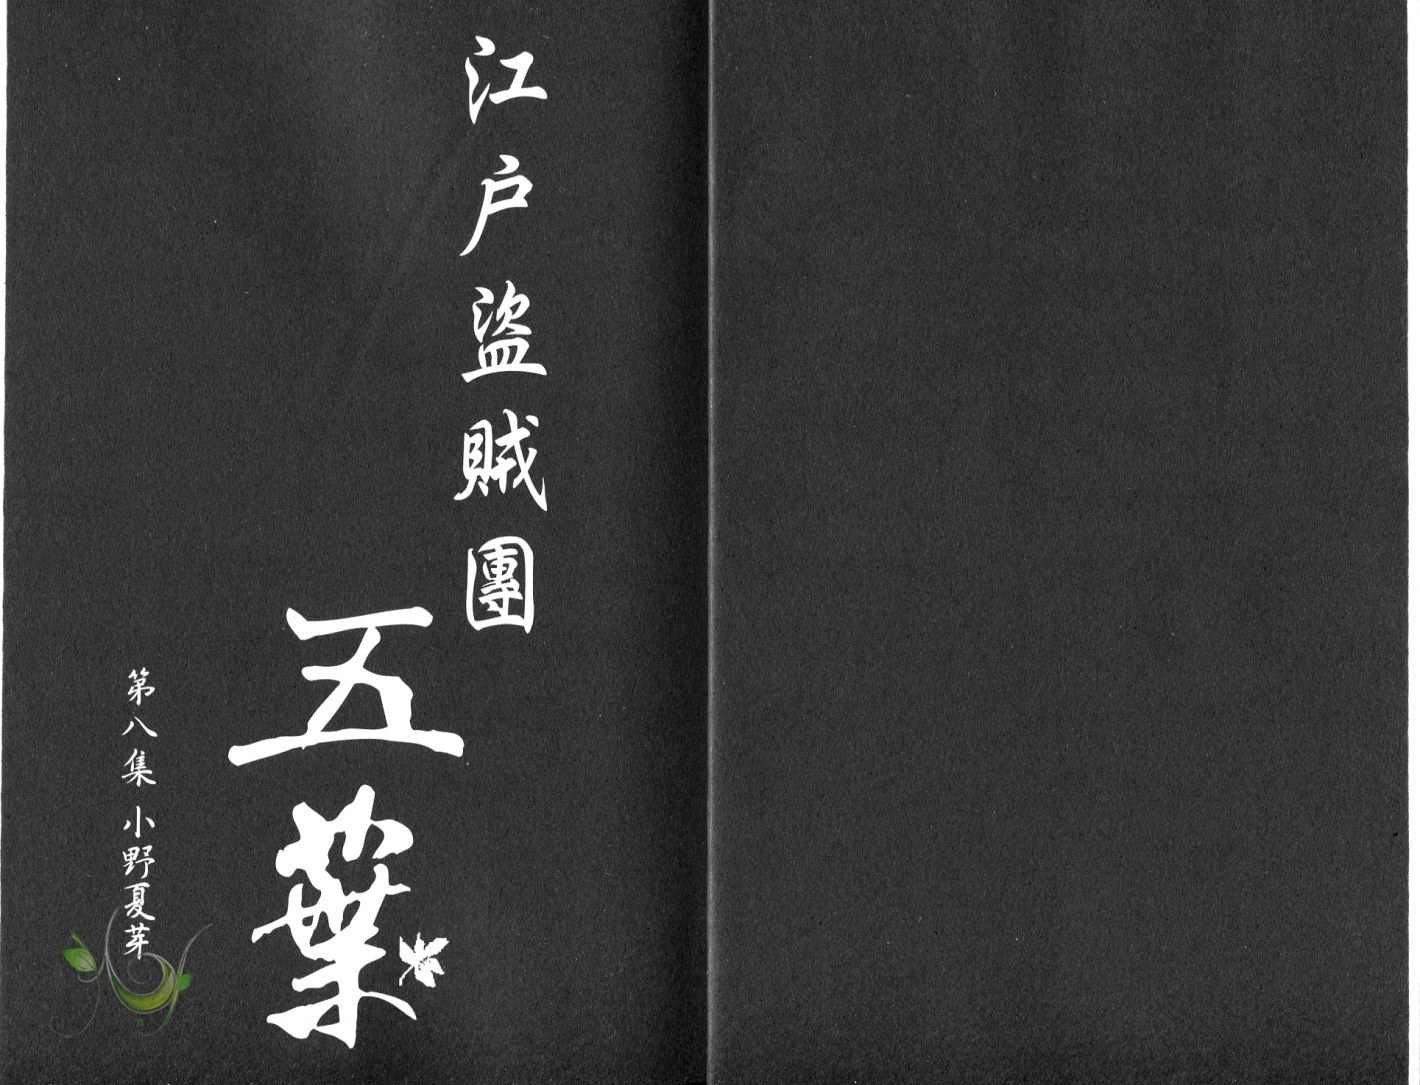 江户盜賊團
五葉
第八集 小野夏芽